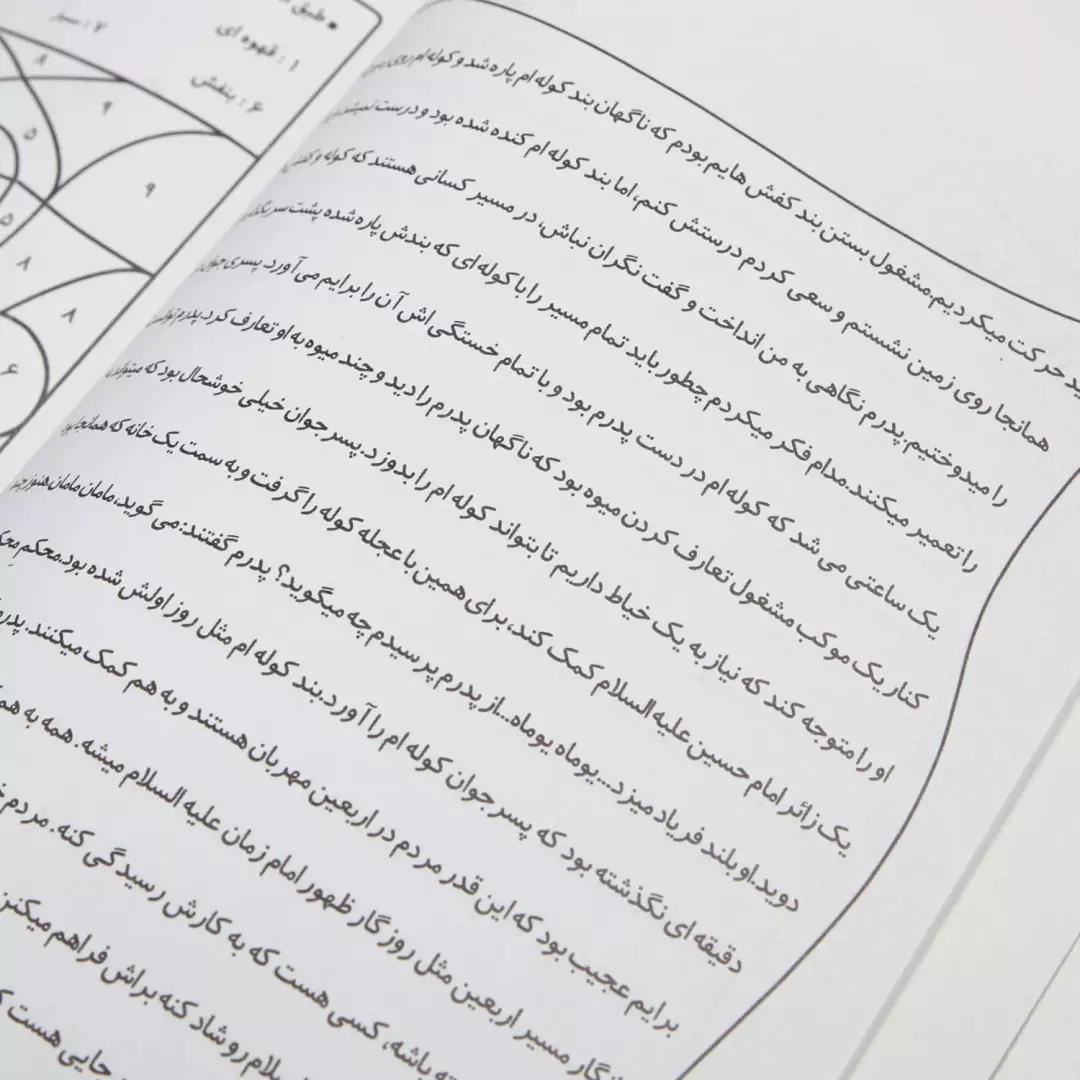 طبق
۱ : قهوه ای
۲ : سبز
۶ : بنفش
۸
۹
۵
۹
۵
۸
۸
۶
حرکت میکردیم.مشغول بستن بند کفش هایم بودم که ناگهان بند کوله ام پاره شد و کوله ام روی
همانجا روی زمین نشستم و سعی کردم درستش کنم،اما بند کوله ام کنده شده بود و درست نمیشد
را میدوختیم.پدرم نگاهی به من انداخت و گفت نگران نباش، در مسیر کسانی هستند که کوله و کفش
را تعمیر میکنند.مدام فکر میکردم چطور باید تمام مسیر را با کوله ای که بندش پاره شده پشت سر
یک ساعتی می شد که کوله ام در دست پدرم بود و با تمام خستگی اش آن را برایم می آورد. پسری جوان
کنار یک موکب مشغول تعارف کردن میوه بود که ناگهان پدرم را دید و چند میوه به او تعارف کرد.پدرم
او را متوجه کند که نیاز به یک خیاط داریم تا بتواند کوله ام را بدوزد.پسر جوان خیلی خوشحال بود که میتواند
یک زائر امام حسین علیه السلام کمک کند،برای همین با عجله کوله را گرفت و به سمت یک خانه که همانجا بود
دوید.او بلند فریاد میزد...یوماه یوماه...از پدرم پرسیدم چه میگوید؟ پدرم گفتند:می گوید،مامان مامان.هنوز چند
دقیقه ای نگذشته بود که پسر جوان کوله ام را آورد.بند کوله ام مثل روز اولش شده بود.محکمِ
برایم عجیب بود که این قدر مردم در اربعین مهربان هستند و به هم کمک میکنند.
مسیر اربعین مثل روزگار ظهور امام زمان علیه السلام میشه. همه به
باشه، کسی هست که به کارش رسیدگی کنه. مردم
رو شاد کنه براش فراهم میکنن
جایی هست